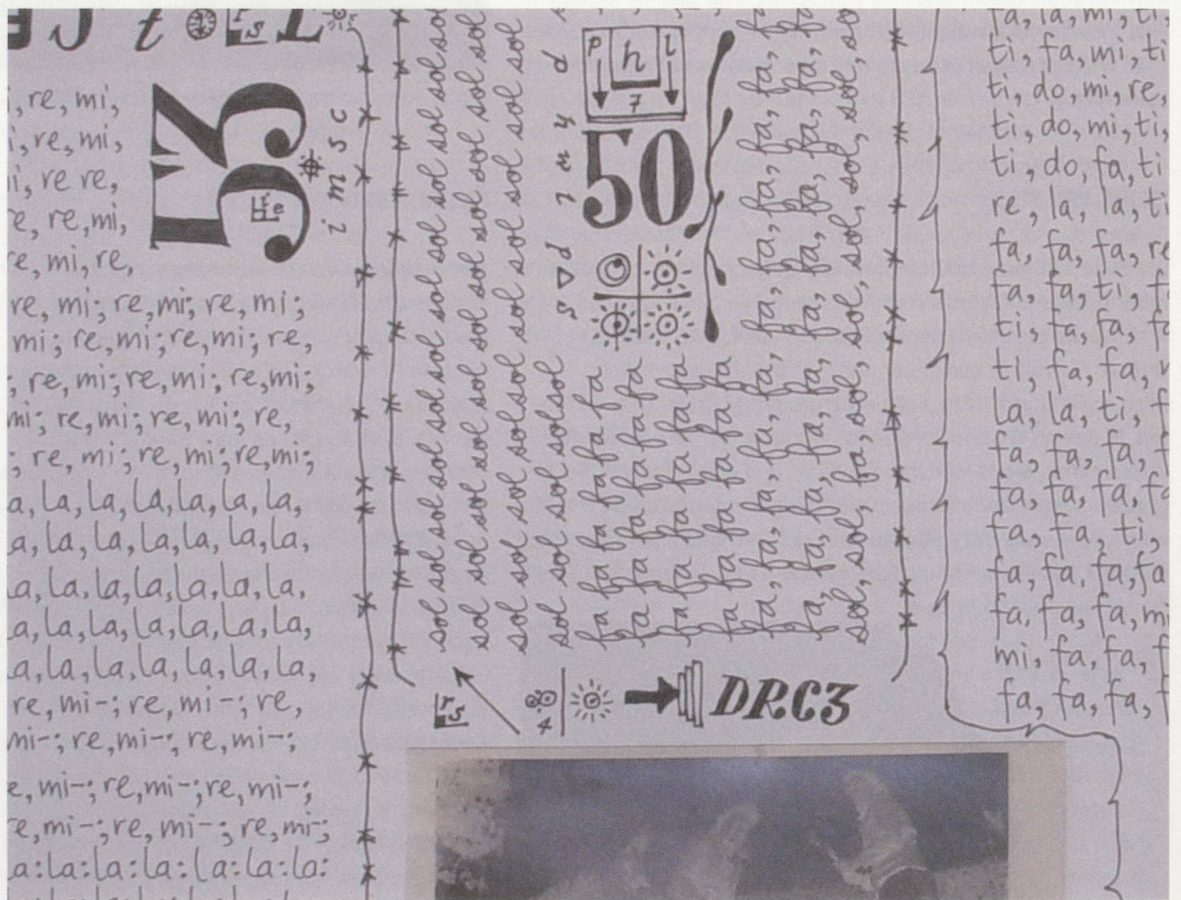 , re, mi,
i, re, mi,
i, re re,
e, re, mi,
e, mi, re,
re, mi; re, mi; re, mi;
mi; re, mi; re, mi; re,
; re, mi; re, mi; re, mi;
mi; re, mi; re, mi; re,
; re, mi; re, mi; re, mi;
a, la, la, la, la, la, la,
a, la, la, la, la, la, la,
a, la, la, la, la, la, la,
a, la, la, la, la, la, la,
a, la, la, la, la, la, la,
re, mi-; re, mi-; re,
mi-; re, mi-; re, mi-;
e, mi-; re, mi-; re, mi-;
e, mi-; re, mi-; re, mi;
a: la: la: la: la: la: la:
i m s c
sol sol sol sol sol sol sol sol sol sol sol sol sol sol
sol sol sol sol sol sol sol sol sol sol sol sol sol sol
sol sol sol sol sol sol sol sol sol sol sol sol sol sol
sol sol sol sol sol sol
fa fa fa fa fa fa
fa fa fa fa fa fa
fa fa fa fa fa fa
fa fa fa fa fa fa
fa, fa, fa, fa, fa, fa, fa, fa, fa, fa, fa, fa,
fa, fa, fa, fa, fa, fa, fa, fa, fa, fa, fa, fa,
sol, sol, sol, fa, sol, sol, sol, sol, sol, sol, sol, sol, so
p h l
7
50
r s
4
DRC3
fa, la, mi, ti,
ti, fa, mi, ti
ti, do, mi, re,
ti, do, mi, ti,
ti, do, fa, ti
re, la, la, ti
fa, fa, fa, re
fa, fa, ti, f
ti, fa, fa, fa
ti, fa, fa,
la, la, ti, f
fa, fa, fa, f
fa, fa, fa, fa
fa, fa, ti,
fa, fa, fa, fa
fa, fa, fa, mi
mi, fa, fa, f
fa, fa, fa, f